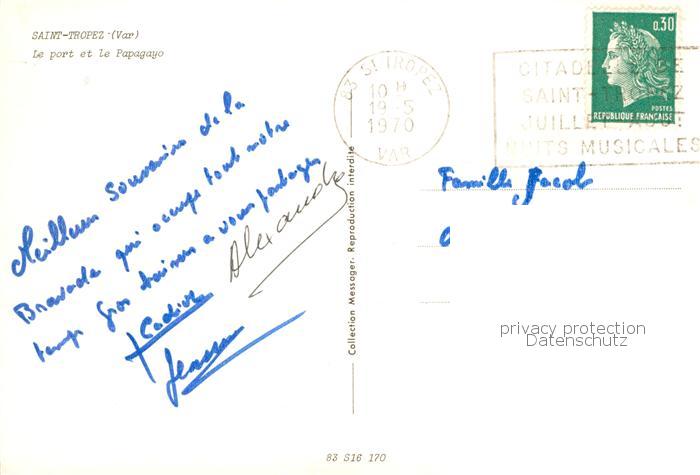 SAINT-TROPEZ (Var)
Le port et le Papagayo
Meilleurs Souvenirs de la
Bravade qui occupe tout notre
temps Gros baisers a vous partager
Alexandre
83 St TROPEZ
10 H
19-5
1970
VAR
0.30
POSTES
REPUBLIQUE FRANÇAISE
CITADELLE DE
SAINT-TROPEZ
JUILLET AOUT
NUITS MUSICALES
Collection Messager. Reproduction interdite
Famille Jacob
privacy protection
Datenschutz
83 S16 170